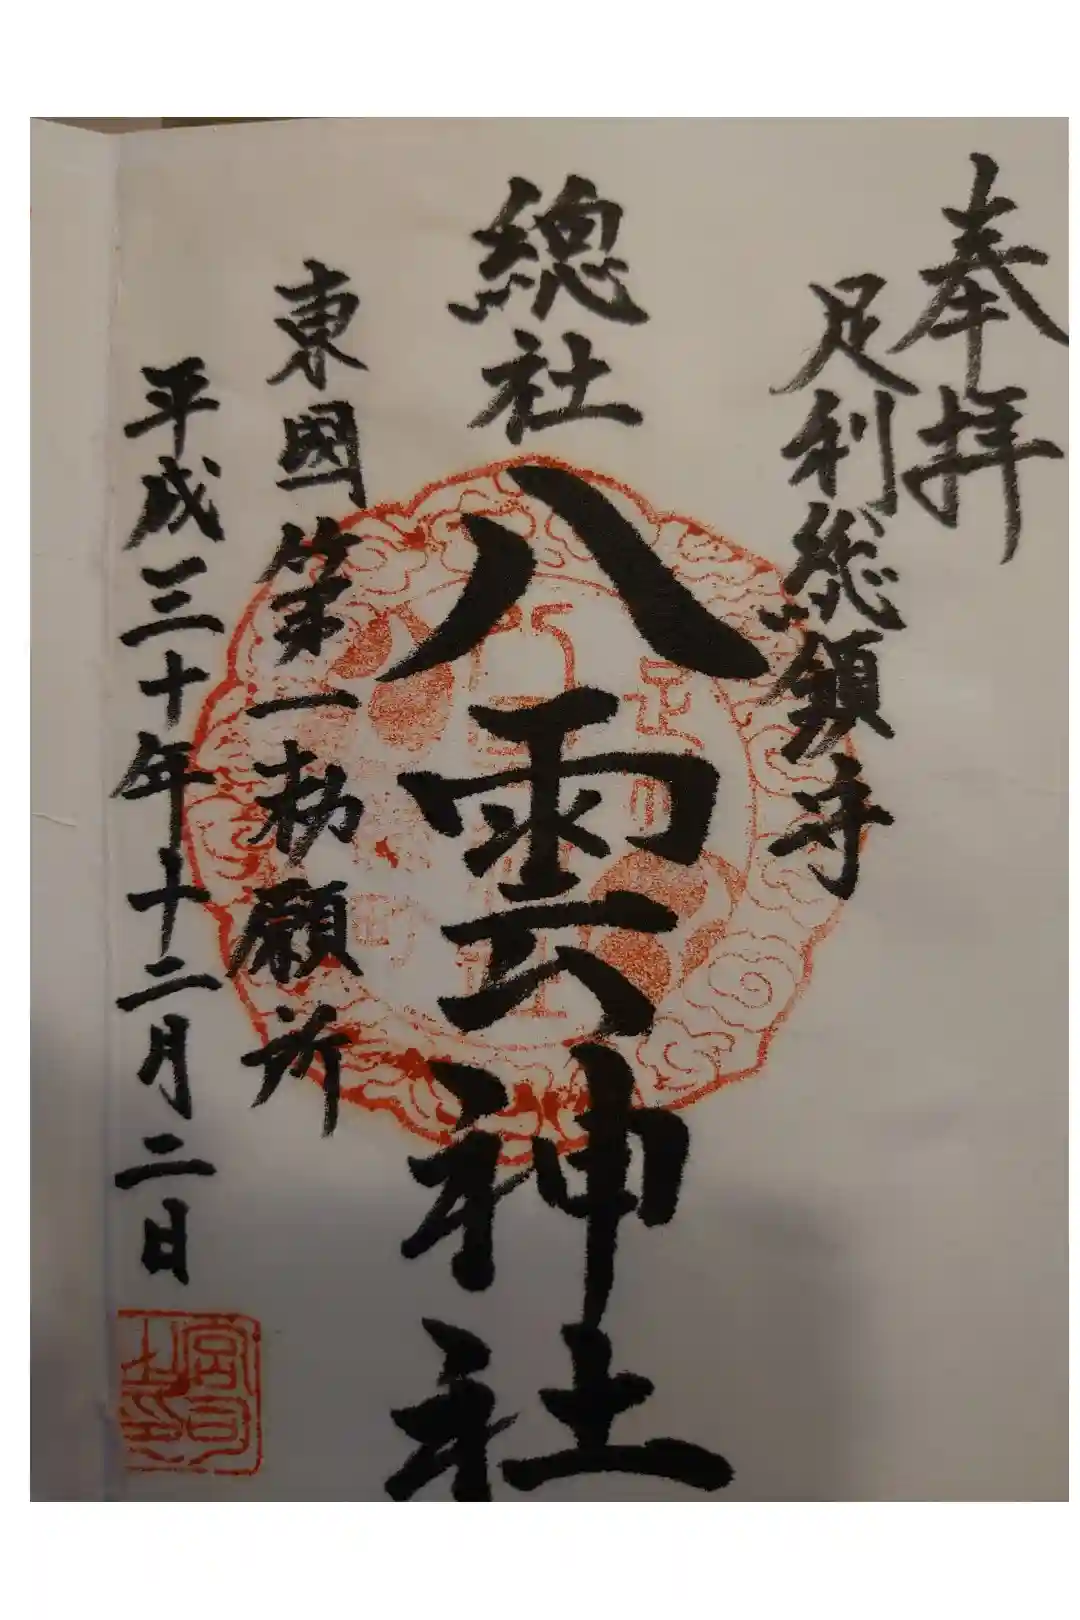 奉拝
足利総鎮守
總社
八雲神社
東國第一勅願所
平成三十年十二月二日
宮司之印